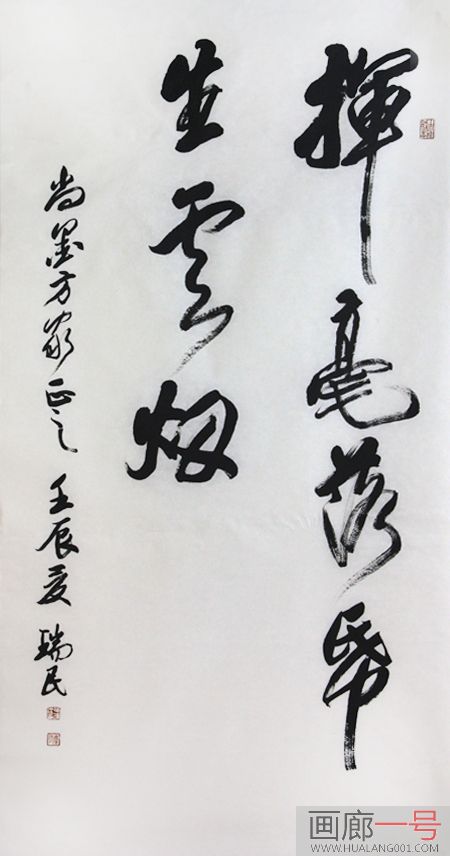 揮毫落帋
生雲烟
尚墨方家正之 壬辰夏 瑞民
画廊一号
WWW.HUALANG001.COM